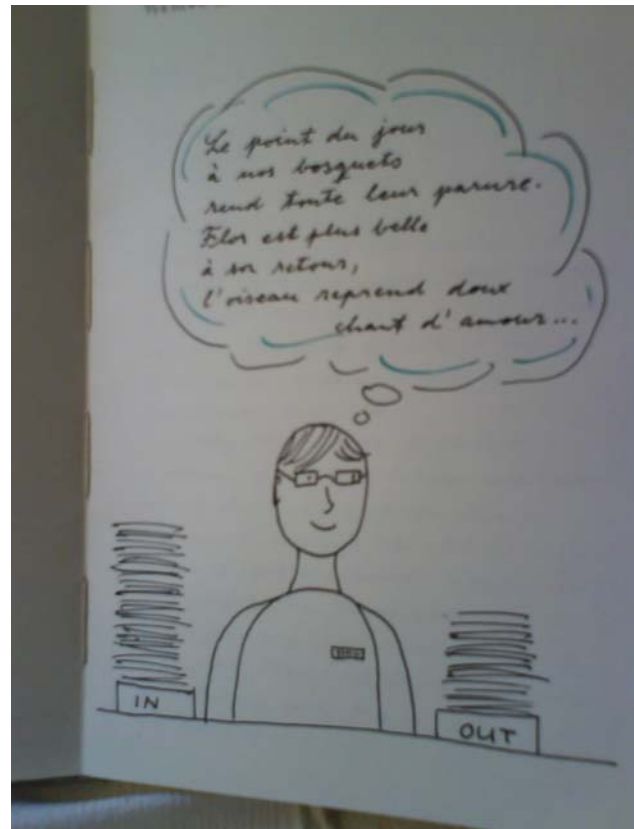 Le point du jour
à nos bosquets
rend toute leur parure.
Flor est plus belle
à son retour,
l'oiseau reprend doux
chant d'amour...
IN
OUT